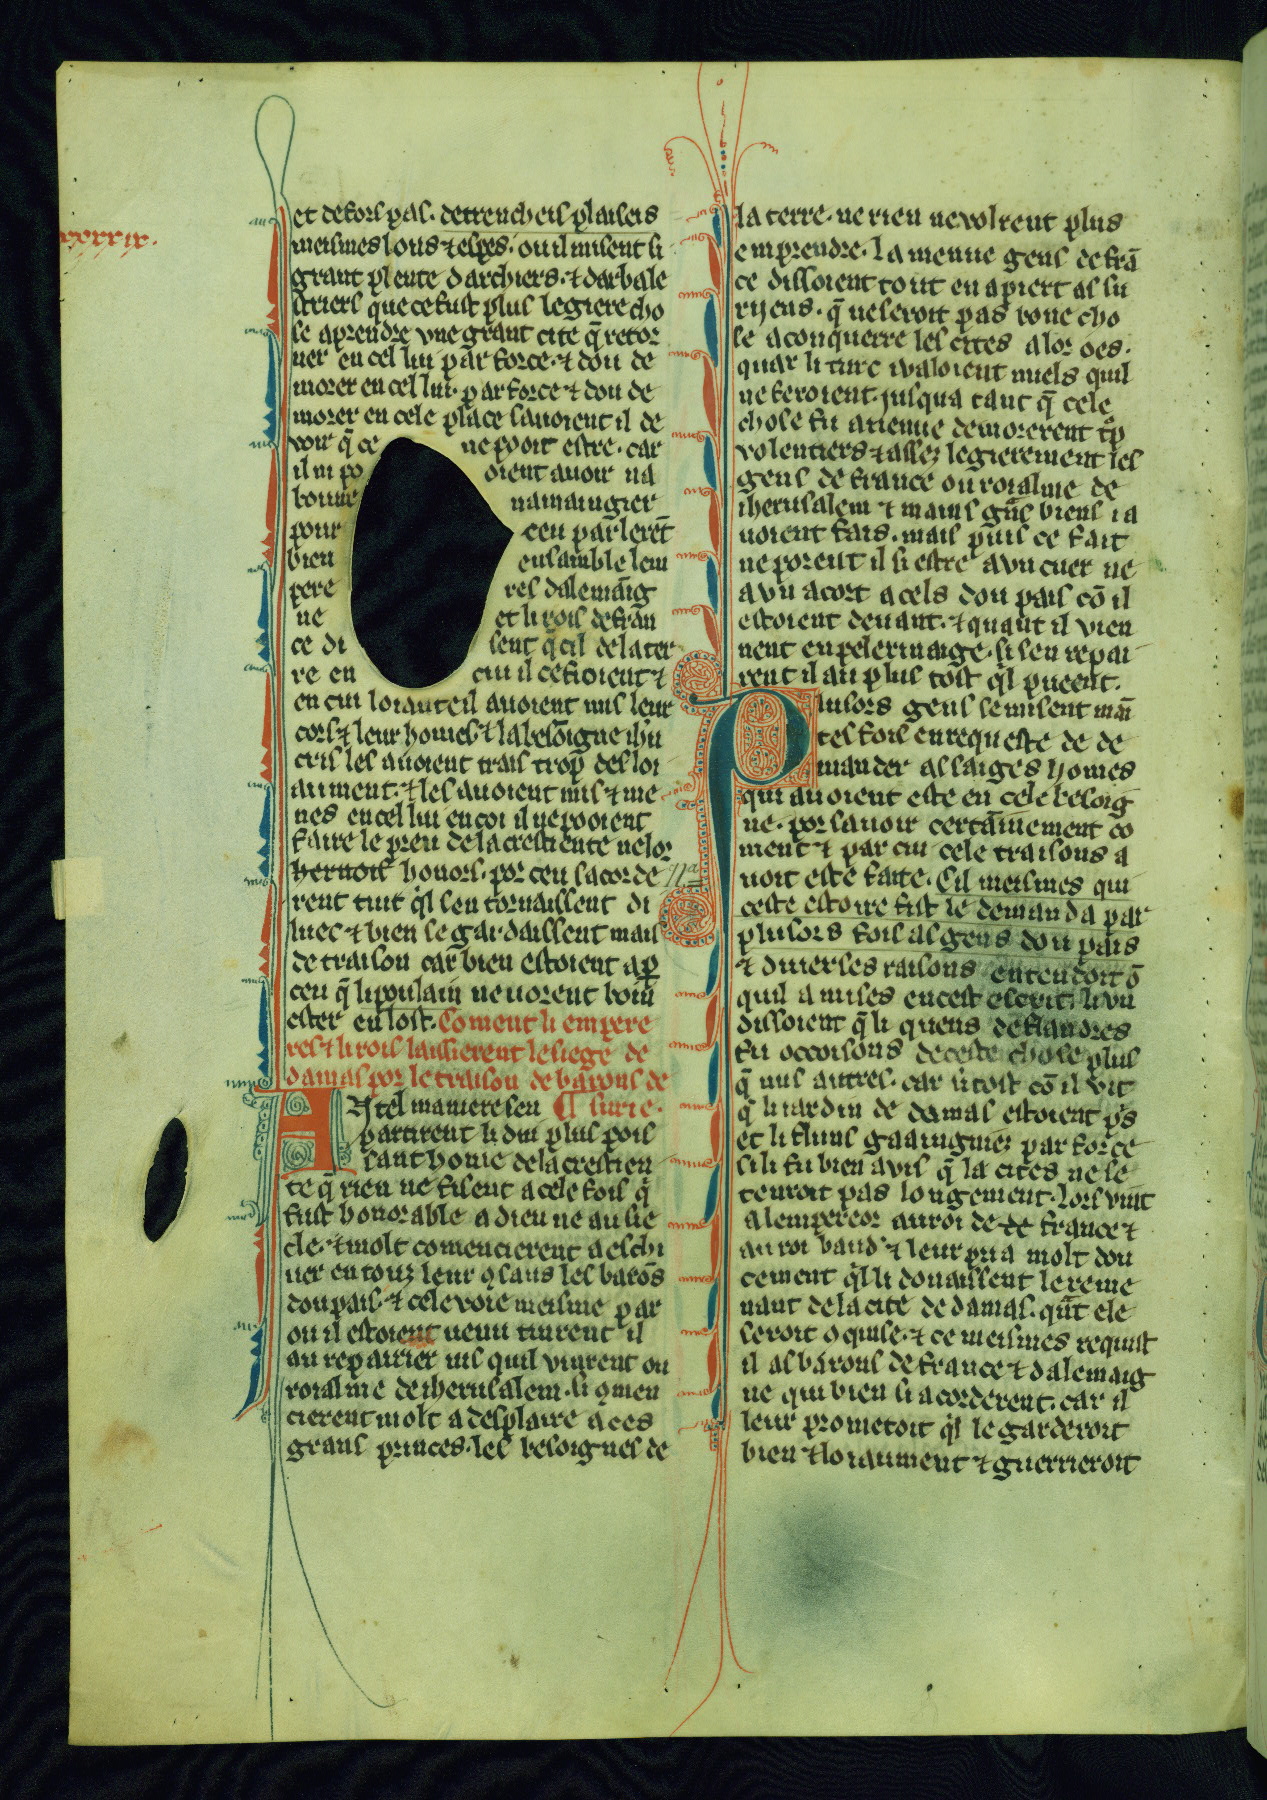 xxxix.
et defors pas. detrencheis plaiseis
meismes lons ⁊ espes. ou il misent si
grant plente darchiers. ⁊ darbale
striers que ce fust plus legiere cho
se aprendre vne grant cite q̄ retor
ner en cel liu par force. ⁊ dou de
morer en cel liu. par force ⁊ dou de
morer en cele place sauoient il de
voir q̄ ce ne pooit estre. car
il ni po oient auoir na
bonne namaingier
pour ceu par̄lerēt
bien ensamble lem
pere res dalemāig
ne et li rois de frān
ce di sent q̄ cil de la ter
re en cui il ce fioient ⁊
en cui loiauteil auoient mis leur
cors ⁊ leur homes. ⁊ la besōigne ihū
cris les auoient trais trop desloi
aument. ⁊ les auoient mis ⁊ me
nes en cel liu en coi il ne pooient
faire le preu de la crestiente ne lor
hernoit honors. por ceu sacorde
rent tuit q̄l sen tornaissent di
luec ⁊ bien se gardaissent mais
de traison car bien estoient ap̄
ceu q̄ li poulain ne uorent boin
ester en lost. Coment li empere
res ⁊ li rois laissierent le siege de
damas por le traison de barons de
AN tel maniere sen ¶ surie.
partirent li dui plus pois
sant home de la crestien
te q̄ rien ne fisent a cele fois q̄
fust honorable a dieu ne au sie
cle. ⁊ molt comencierent a eschi
uer en touz leur 9saus les barōs
dou pais. ⁊ cele voie meisme par
ou il estoient uenu tinrent il
au reparrier mis quil vinrent ou
roialme de iherusalem. si 9men
cierent molt a desplaire a ces
grans princes. les besoignes de
la terre. ne rien ne volrent plus
emprendre. la menue gens de frā
ce dissoient tout en apiert as su
rijens. q̄ ne seroit pas bone cho
se a conquerre les cites a lor oes.
quar li turc i valoient miels quil
ne feroient. jusqua tant q̄ cele
chose fu auenue demorerent t̄p
volentiers ⁊ assez legierement les
gens de france ou roialme de
iherusalem ⁊ mains grās biens i a
uoient fais. mais puis ce fait
ne porent il si estre a vn cuer ne
a vn acort a cels dou pais cō il
estoient deuant. ⁊ quant il vien
nent en pelerinaige. si sen repai
rent il au plus tost q̄l pueent.
Plusors gens se misent mā
tes fois en requeste de de
mander as saiges homes
qui auoient este en cele besoig
ne. por sauoir certāinement co
ment ⁊ par cui cele traisons a
uoit este faite. Cil meismes qui
ceste estoire fist le demanda par
plusors fois as gens dou pais
⁊ diuerses raisons entendoit ō
quil a mises en cest escrit. li vn
dissoient q̄ li quens de flandres
fu occoisons de ceste chose plus
q̄ nus autres. car si tost cō il vit
q̄ li iardin de damas estoient p̄s
et li fluns gaaingniez par force
si li fu bien avis q̄ la cites ne se
tenroit pas longement. lors vint
a lempereor au roi de de france ⁊
au roi baud̄ ⁊ leur pria molt dou
cement q̄l li donaissent le reme
nant de la cite de damas. qūt ele
seroit 9quise. ⁊ ce meismes requist
il as barons de france ⁊ dalemaig
ne qui bien si acorderent. car il
leur prometoit q̄l le garderoit
bien ⁊ loiaument ⁊ guerrieroit